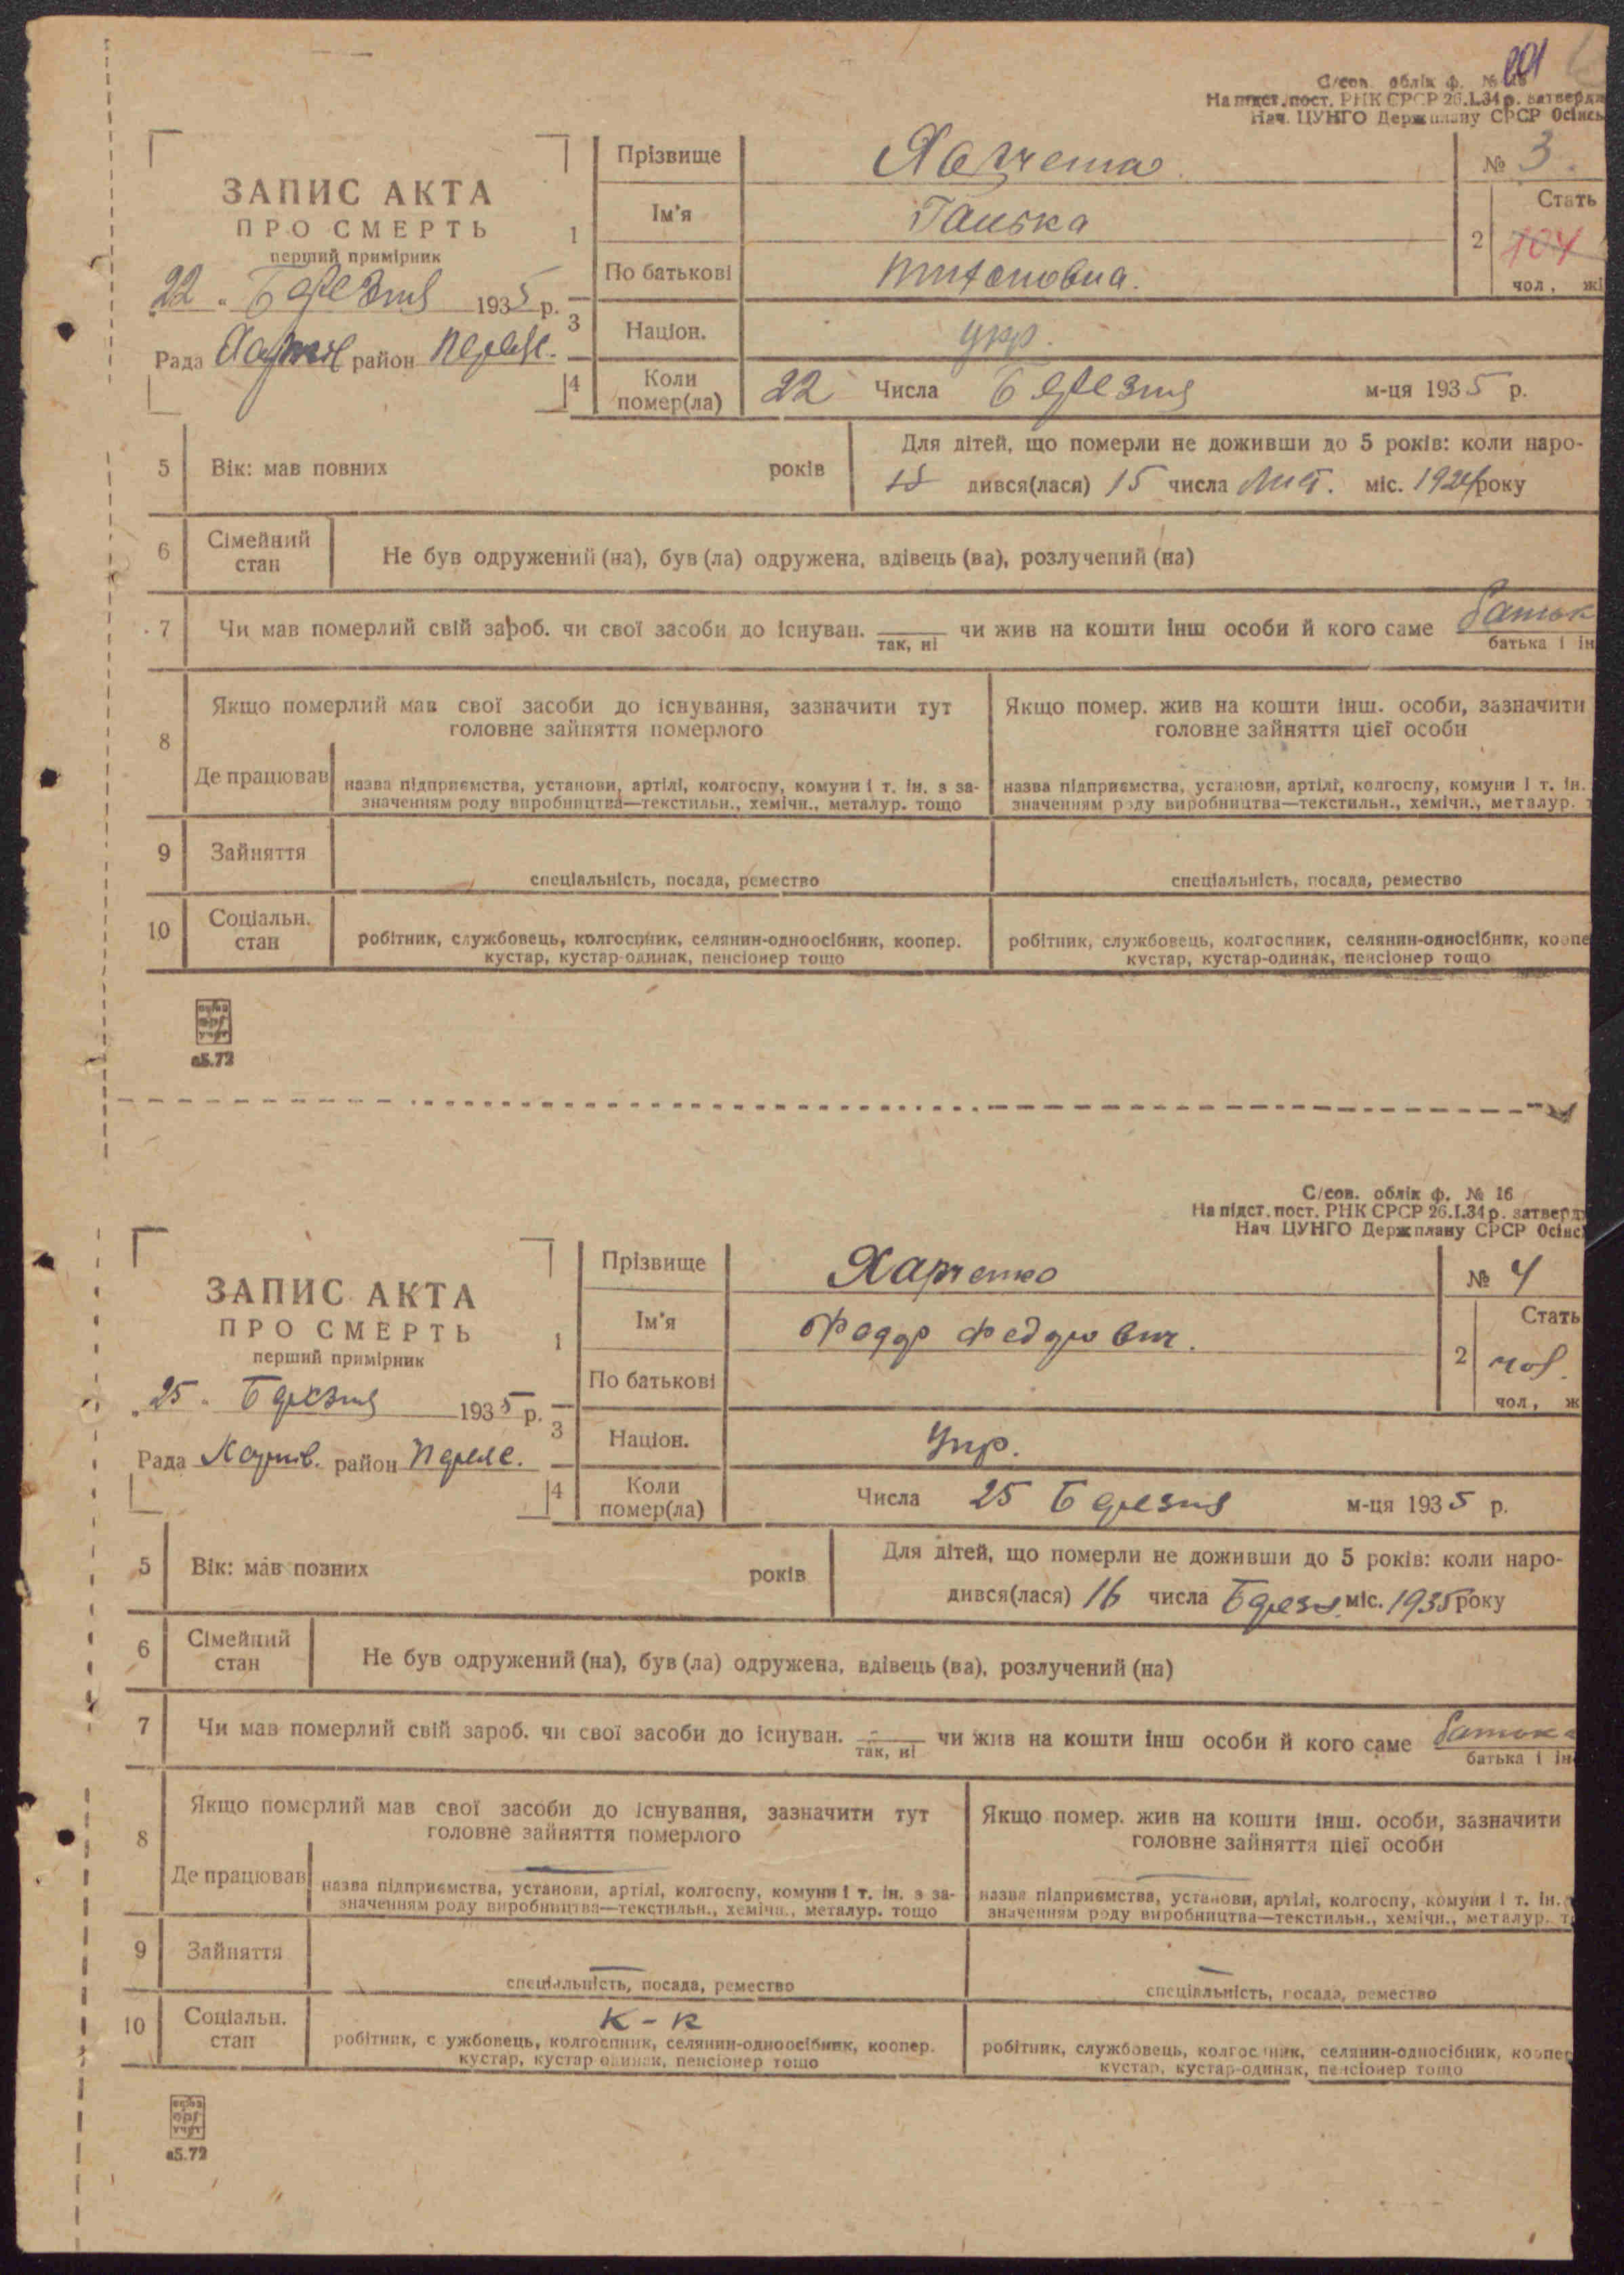 201
С/сов. облік ф. № 16
На підст. пост. РНК СРСР 26.I.34 р. затвердж
Нач. ЦУНГО Держплану СРСР Осінсь
ЗАПИС АКТА
ПРО СМЕРТЬ
перший примірник
22 Березня 1935 р.
Рада район
1
Прізвище
Ім'я Ганька
По батькові
№ 3
2 Стать
чол, жі
3 Націон. укр.
4 Коли помер(ла) 22 Числа Березня м-ця 1935 р.
5 Вік: мав повних років
Для дітей, що померли не доживши до 5 років: коли наро-
дився(лася) 15 числа міс. року
6 Сімейний стан Не був одружений (на), був (ла) одружена, вдівець (ва), розлучений (на)
7 Чи мав померлий свій зароб. чи свої засоби до існуван. чи жив на кошти інш особи й кого саме батьк
так, ні батька і ін
8 Якщо померлий мав свої засоби до існування, зазначити тут
головне зайняття померлого
Якщо помер. жив на кошти інш. особи, зазначити
головне зайняття цієї особи
Де працював
назва підприємства, установи, артілі, колгоспу, комуни і т. ін. з за-
значенням роду виробництва—текстильн., хемічн., металур. тощо
назва підприємства, установи, артілі, колгоспу, комуни і т. ін.
значенням роду виробництва—текстильн., хемічн., металур. т
9 Зайняття
спеціальність, посада, ремество
спеціальність, посада, ремество
10 Соціальн. стан
робітник, службовець, колгоспник, селянин-одноосібник, коопер.
кустар, кустар-одинак, пенсіонер тощо
робітник, службовець, колгоспник, селянин-односібник, коопе
кустар, кустар-одинак, пенсіонер тощо
а5.72
С/сов. облік ф. № 16
На підст. пост. РНК СРСР 26.I.34 р. затвердж
Нач ЦУНГО Держплану СРСР Осінсь
ЗАПИС АКТА
ПРО СМЕРТЬ
перший примірник
25 Березня 1935 р.
Рада Харків. район Переяс.
1
Прізвище Харченко
Ім'я Федор Федорович.
По батькові
№ 4
2 Стать
чол.
чол, ж
3 Націон. Укр.
4 Коли помер(ла) Числа 25 Березня м-ця 1935 р.
5 Вік: мав повних років
Для дітей, що померли не доживши до 5 років: коли наро-
дився(лася) 16 числа Березн. міс. 1935 року
6 Сімейний стан Не був одружений (на), був (ла) одружена, вдівець (ва), розлучений (на)
7 Чи мав померлий свій зароб. чи свої засоби до існуван. - чи жив на кошти інш особи й кого саме батька
так, ні батька і ін
8 Якщо померлий мав свої засоби до існування, зазначити тут
головне зайняття померлого
Якщо помер. жив на кошти інш. особи, зазначити
головне зайняття цієї особи
Де працював
назва підприємства, установи, артілі, колгоспу, комуни і т. ін. з за-
значенням роду виробництва—текстильн., хемічн., металур. тощо
назва підприємства, установи, артілі, колгоспу, комуни і т. ін.
значенням роду виробництва—текстильн., хемічн., металур. т
9 Зайняття
спеціальність, посада, ремество
спеціальність, посада, ремество
10 Соціальн. стан
К - К
робітник, с ужбовець, колгоспник, селянин-одноосібник, коопер.
кустар, кустар одинак, пенсіонер тощо
робітник, службовець, колгоспник, селянин-односібник, коопер
кустар, кустар-одинак, пенсіонер тощо
а5.72